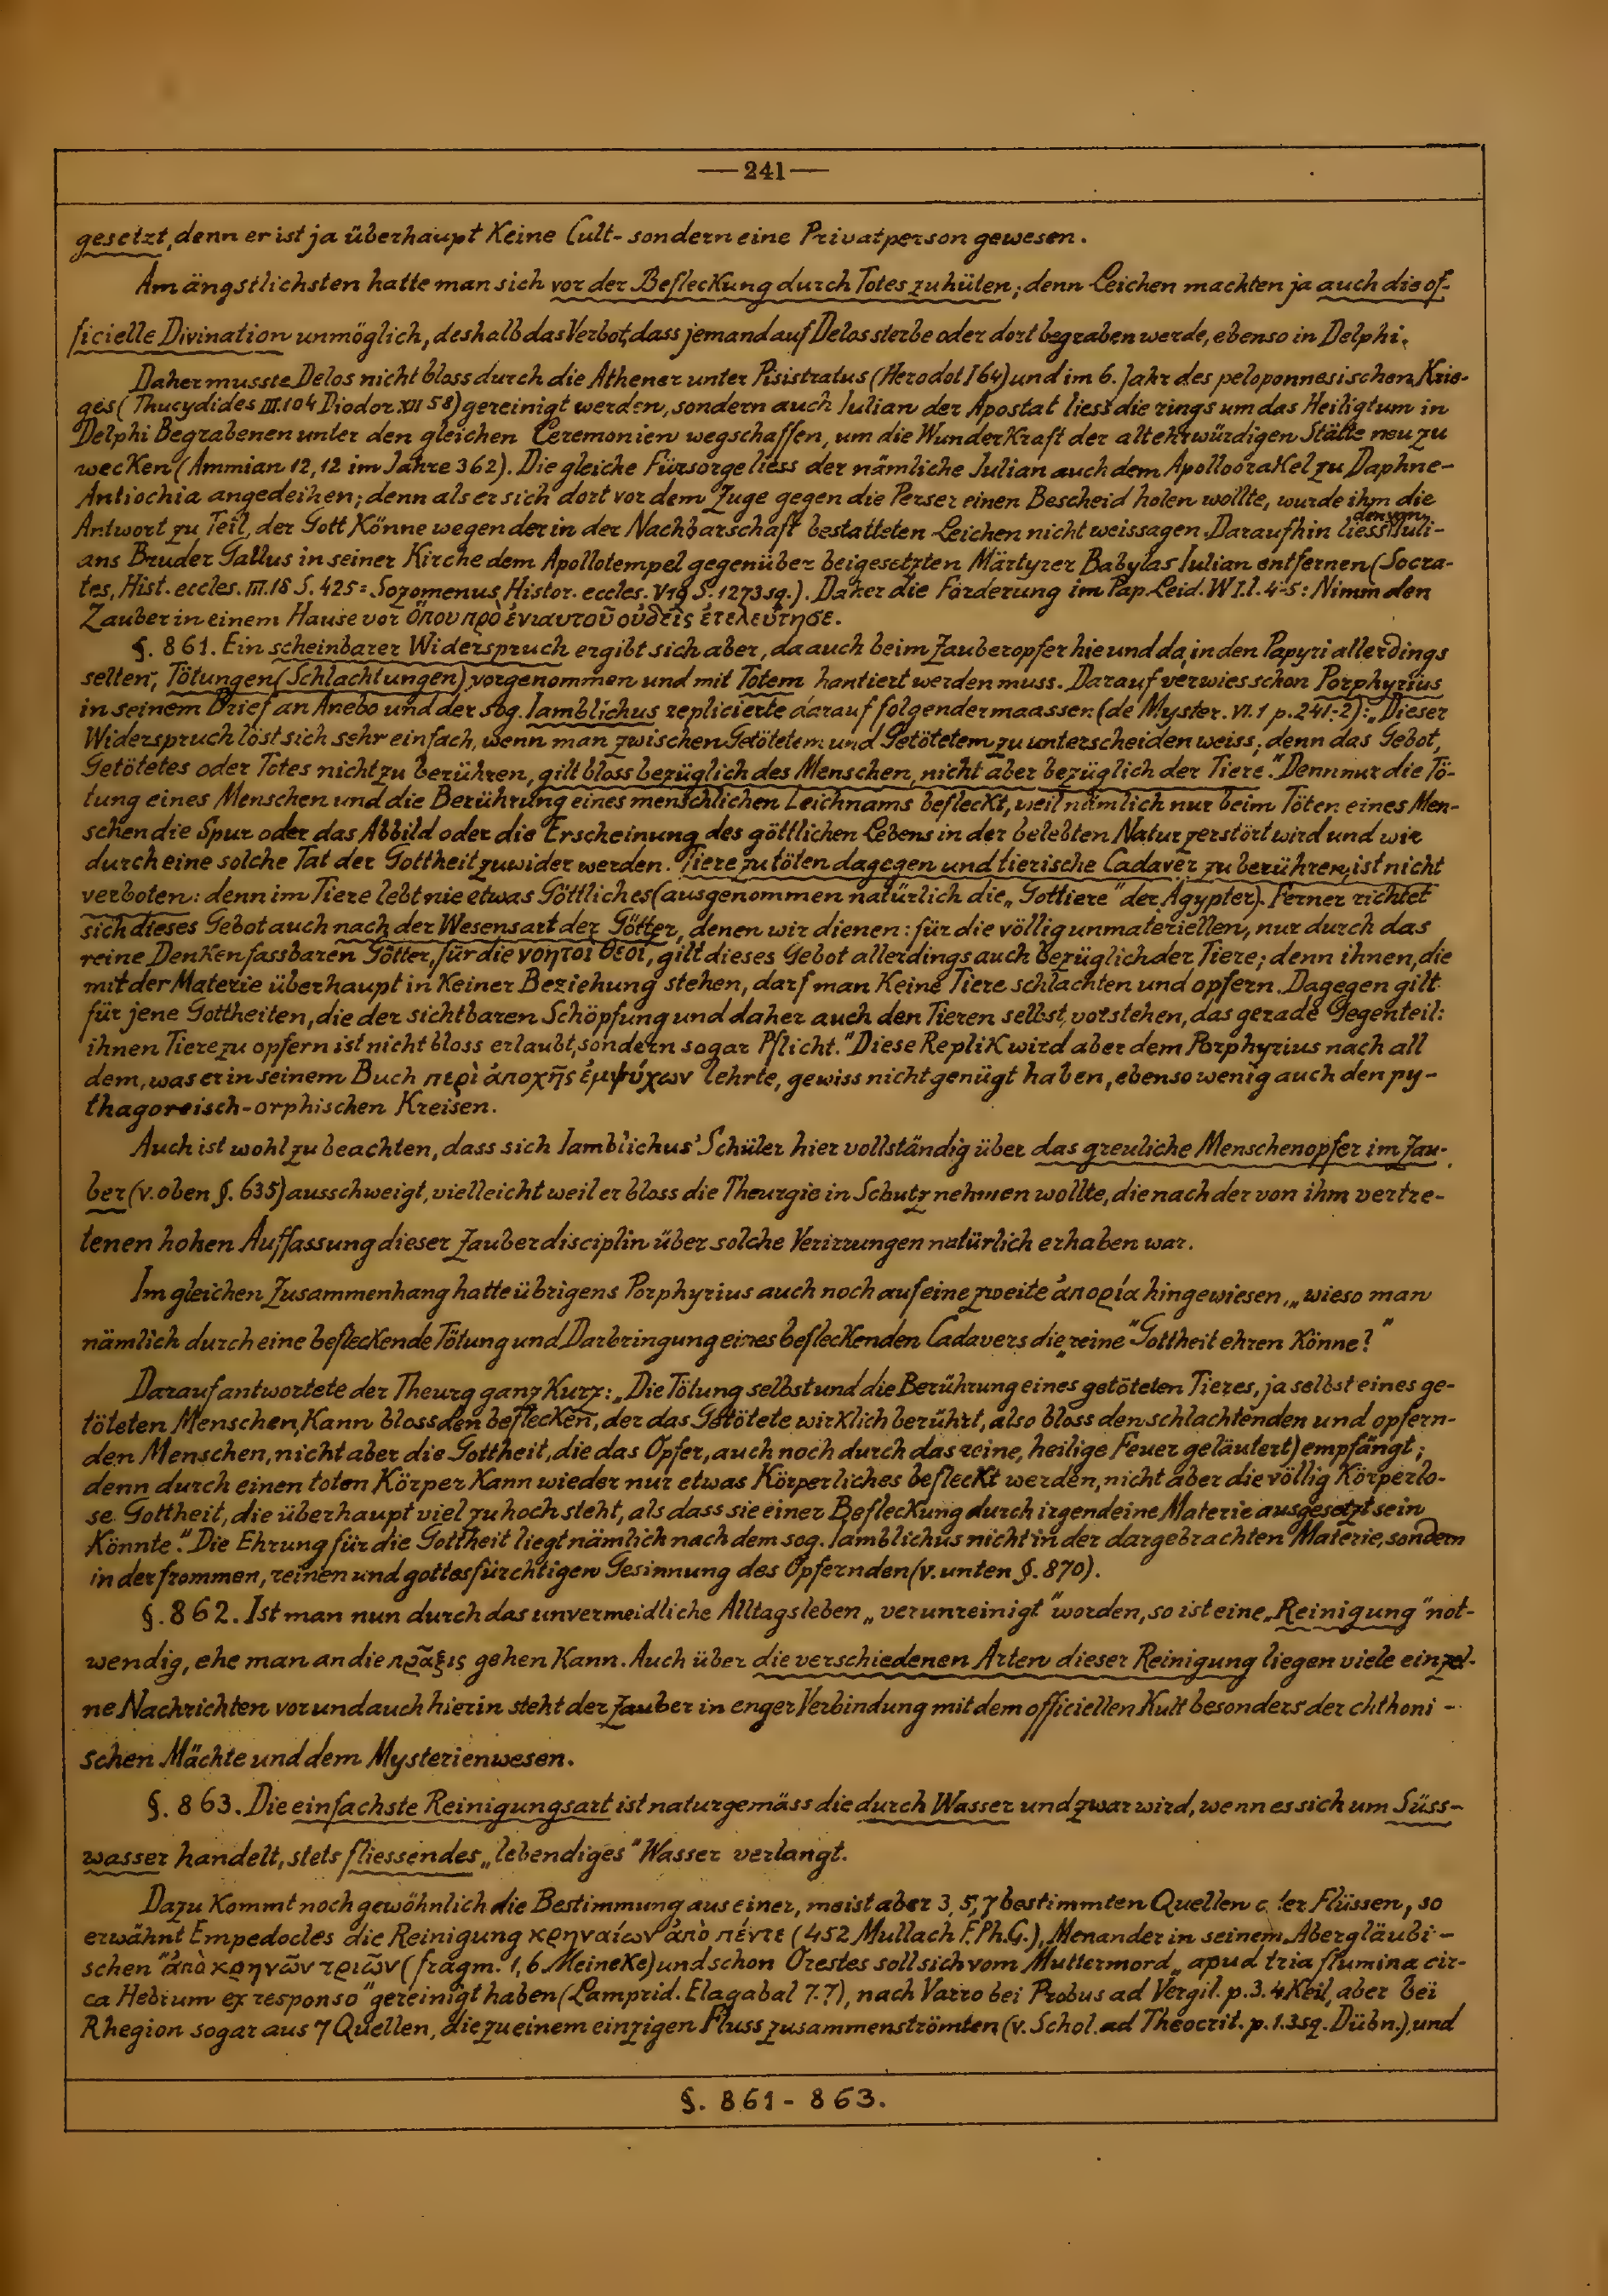 —241—
gesetzt, denn er ist ja überhaupt Keine Cult- sondern eine Privatperson gewesen.
Am ängstlichsten hatte man sich vor der Befleckung durch Totes zuhüten; denn Leichen machten ja auch die of-
ficielle Divination unmöglich, deshalb das Verbot, dass jemand auf Delos sterbe oder dort begraben werde, ebenso in Delphi.
Daher musste Delos nicht bloss durch die Athener unter Pisistratus (Herodot I 64) und im 6. Jahr des peloponnesischen Krie-
ges (Thucydides III.104 Diodor XII 58) gereinigt werden, sondern auch Iulian der Apostat liess die rings um das Heiligtum in
Delphi Begrabenen unter den gleichen Ceremonien wegschaffen, um die Wunderkraft der altehrwürdigen Stätte neu zu
wecken (Ammian 12,12 im Jahre 362). Die gleiche Fürsorge liess der nämliche Iulian auch dem Apolloorakel zu Daphne-
Antiochia angedeihen; denn als er sich dort vor dem Zuge gegen die Perser einen Bescheid holen wollte, wurde ihm die
Antwort zu Teil, der Gott Könne wegen der in der Nachbarschaft bestatteten Leichen nicht weissagen. Daraufhin liess den von Iuli-
ans Bruder Gallus in seiner Kirche dem Apollotempel gegenüber beigesetzten Märtyrer Babylas Iulian entfernen (Socra-
tes, Hist. eccles. III.18 S. 425 = Sozomenus, Histor. eccles. V 19 S. 1273 sq.). Daher die Forderung im Pap. Leid. W I. l. 4-5: Nimm den
Zauber in einem Hause vor ὅπου πρὸ ἐνιαυτοῦ οὐδεὶς ἐτελεύτησε.
§. 861. Ein scheinbarer Widerspruch ergibt sich aber, da auch beim Zauberopfer hie und da, in den Papyri allerdings
selten, Tötungen (Schlachtungen) vorgenommen und mit Totem hantiert werden muss. Darauf verwies schon Porphyrius
in seinem Brief an Anebo und der sog. Iamblichus replicierte darauf folgendermaassen (de Myster. VI. 1 p. 241-2): „Dieser
Widerspruch löst sich sehr einfach, wenn man zwischen Getötetem und Getötetem zu unterscheiden weiss; denn das Gebot,
Getötetes oder Totes nicht zu berühren, gilt bloss bezüglich des Menschen, nicht aber bezüglich der Tiere." Denn nur die Tö-
tung eines Menschen und die Berührung eines menschlichen Leichnams befleckt, weil nämlich nur beim Töten eines Men-
schen die Spur oder das Abbild oder die Erscheinung des göttlichen Lebens in der belebten Natur zerstört wird und wir
durch eine solche Tat der Gottheit zuwider werden. Tiere zu töten dagegen und tierische Cadaver zu berühren, ist nicht
verboten: denn im Tiere lebt nie etwas Göttliches (ausgenommen natürlich die „Gottiere" der Ägypter). Ferner richtet
sich dieses Gebot auch nach der Wesensart der Götter, denen wir dienen: für die völlig unmateriellen, nur durch das
reine Denken fassbaren Götter, für die νοητοὶ θεοί, gilt dieses Gebot allerdings auch bezüglich der Tiere; denn ihnen, die
mit der Materie überhaupt in Keiner Beziehung stehen, darf man Keine Tiere schlachten und opfern. Dagegen gilt
für jene Gottheiten, die der sichtbaren Schöpfung und daher auch den Tieren selbst, vorstehen, das gerade Gegenteil:
ihnen Tiere zu opfern ist nicht bloss erlaubt, sondern sogar Pflicht." Diese Replik wird aber dem Porphyrius nach all
dem, was er in seinem Buch περὶ ἀποχῆς ἐμψύχων lehrte, gewiss nicht genügt haben, ebenso wenig auch den py-
thagoreisch-orphischen Kreisen.
Auch ist wohl zu beachten, dass sich Iamblichus' Schüler hier vollständig über das greuliche Menschenopfer im Zau-
ber (v. oben §. 635) ausschweigt, vielleicht weil er bloss die Theurgie in Schutz nehmen wollte, die nach der von ihm vertre-
tenen hohen Auffassung dieser Zauberdisciplin über solche Verirrungen natürlich erhaben war.
Im gleichen Zusammenhang hatte übrigens Porphyrius auch noch auf eine zweite ἀπορία hingewiesen, „wieso man
nämlich durch eine befleckende Tötung und Darbringung eines befleckenden Cadavers die „reine" Gottheit ehren Könne?"
Darauf antwortete der Theurg ganz Kurz: „Die Tötung selbst und die Berührung eines getöteten Tieres, ja selbst eines ge-
töteten Menschen, Kann bloss den beflecken, der das Getötete wirklich berührt, also bloss den schlachtenden und opfern-
den Menschen, nicht aber die Gottheit, die das Opfer, auch noch durch das reine, heilige Feuer geläutert) empfängt;
denn durch einen toten Körper Kann wieder nur etwas Körperliches befleckt werden, nicht aber die völlig Körperlo-
se Gottheit, die überhaupt viel zu hoch steht, als dass sie einer Befleckung durch irgendeine Materie ausgesetzt sein
Könnte." Die Ehrung für die Gottheit liegt nämlich nach dem sog. Iamblichus nicht in der dargebrachten Materie, sondern
in der frommen, reinen und gottesfürchtigen Gesinnung des Opfernden (v. unten §. 870).
§. 862. Ist man nun durch das unvermeidliche Alltagsleben „verunreinigt" worden, so ist eine „Reinigung" not-
wendig, ehe man an die πρᾶξις gehen Kann. Auch über die verschiedenen Arten dieser Reinigung liegen viele einzel-
ne Nachrichten vor und auch hierin steht der Zauber in enger Verbindung mit dem officiellen Kult besonders der chthoni-
schen Mächte und dem Mysterienwesen.
§. 863. Die einfachste Reinigungsart ist naturgemäss die durch Wasser und zwar wird, wenn es sich um Süss-
wasser handelt, stets fliessendes „lebendiges" Wasser verlangt.
Dazu Kommt noch gewöhnlich die Bestimmung aus einer, meist aber 3, 5, 7 bestimmten Quellen oder Flüssen, so
erwähnt Empedocles die Reinigung κρηναίων ἀπὸ πέντε (452 Mullach F.Ph.G.), Menander in seinem „Abergläubi-
schen" ἀπὸ κρηνῶν τριῶν (fragm. 1,6 Meineke) und schon Orestes soll sich vom Muttermord „apud tria flumina cir-
ca Hebrum ex responso" gereinigt haben (Lamprid. Elagabal 7.7), nach Varro bei Probus ad Vergil. p. 3.4 Keil, aber bei
Rhegion sogar aus 7 Quellen, die zu einem einzigen Fluss zusammenströmten (v. Schol. ad Theocrit. p. 1.3 sq. Dübn.), und
§. 861-863.